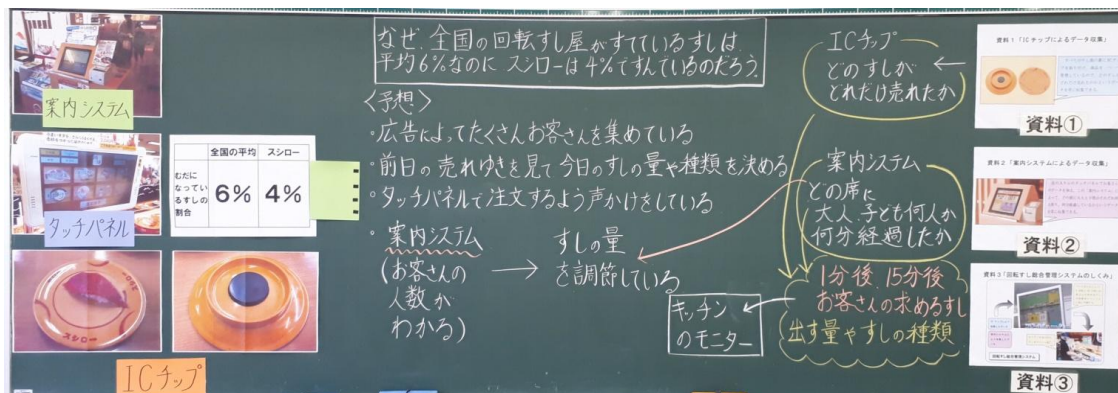 案内システム
タッチパネル
全国の平均
スシロー
むだに
なってい
るすしの
割合
6%
4%
スシロー
ICチップ
なぜ、全国の回転すし屋がすてているすしは、
平均6%なのに スシローは4%ですんでいるのだろう。
〈予想〉
・広告によってたくさんお客さんを集めている
・前日の売れゆきを見て今日のすしの量や種類を決める
・タッチパネルで注文するよう声かけをしている
・案内システム
(お客さんの
人数が
わかる)
→
すしの量
を調節している
ICチップ
どのすしが
どれだけ売れたか
案内システム
どの席に
大人、子ども何人か
何分経過したか
1分後、15分後
お客さんの求めるすし
出す量やすしの種類
キッチン
のモニター
資料1「ICチップによるデータ収集」
資料①
資料2「案内システムによるデータ収集」
資料②
資料3「回転すし総合管理システムのしくみ」
回転すし総合管理システム
資料③